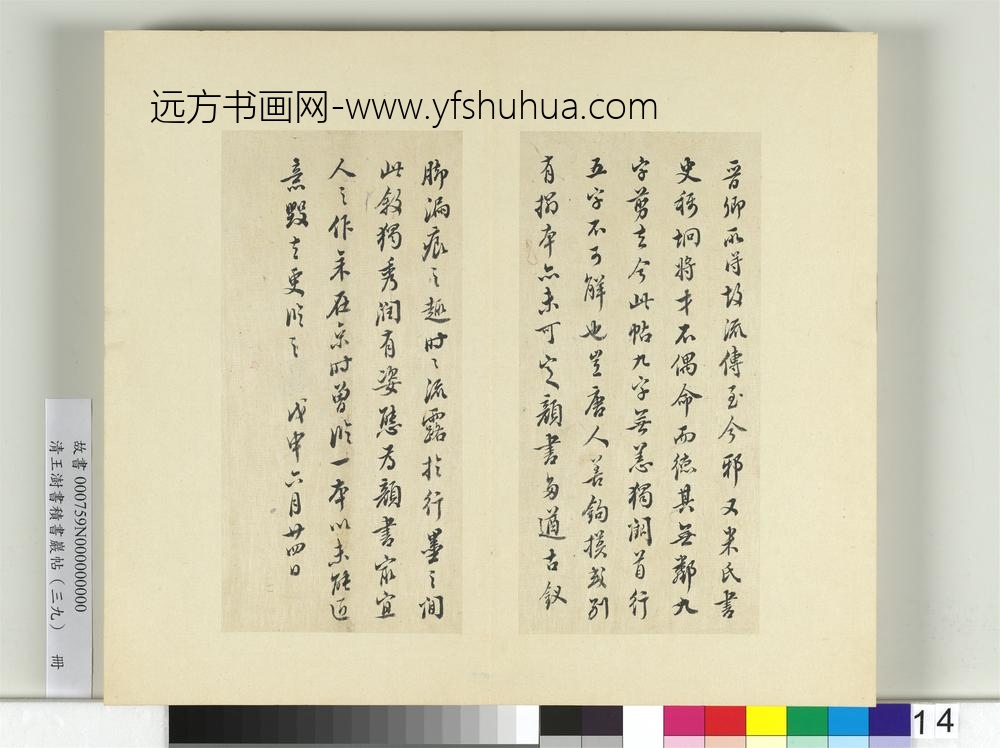 远方书画网-www.yfshuhua.com
晋卿所得故流傳至今邪又米氏書
史稱坰將才不偶命而德其無鄰九
字剪去今此帖九字無恙獨闕首行
五字不可解也豈唐人善鉤摸或別
有搨本亦未可定顏書多遒古釵
脚漏痕之趣時時流露於行墨之間
此敘獨秀潤有姿態為顏書最宜
人之作余在京時曾臨一本以未能近
意毀去更臨之 戊申六月廿四日
故書000759N000000000
清王澍書積書巖帖(三九) 冊
14